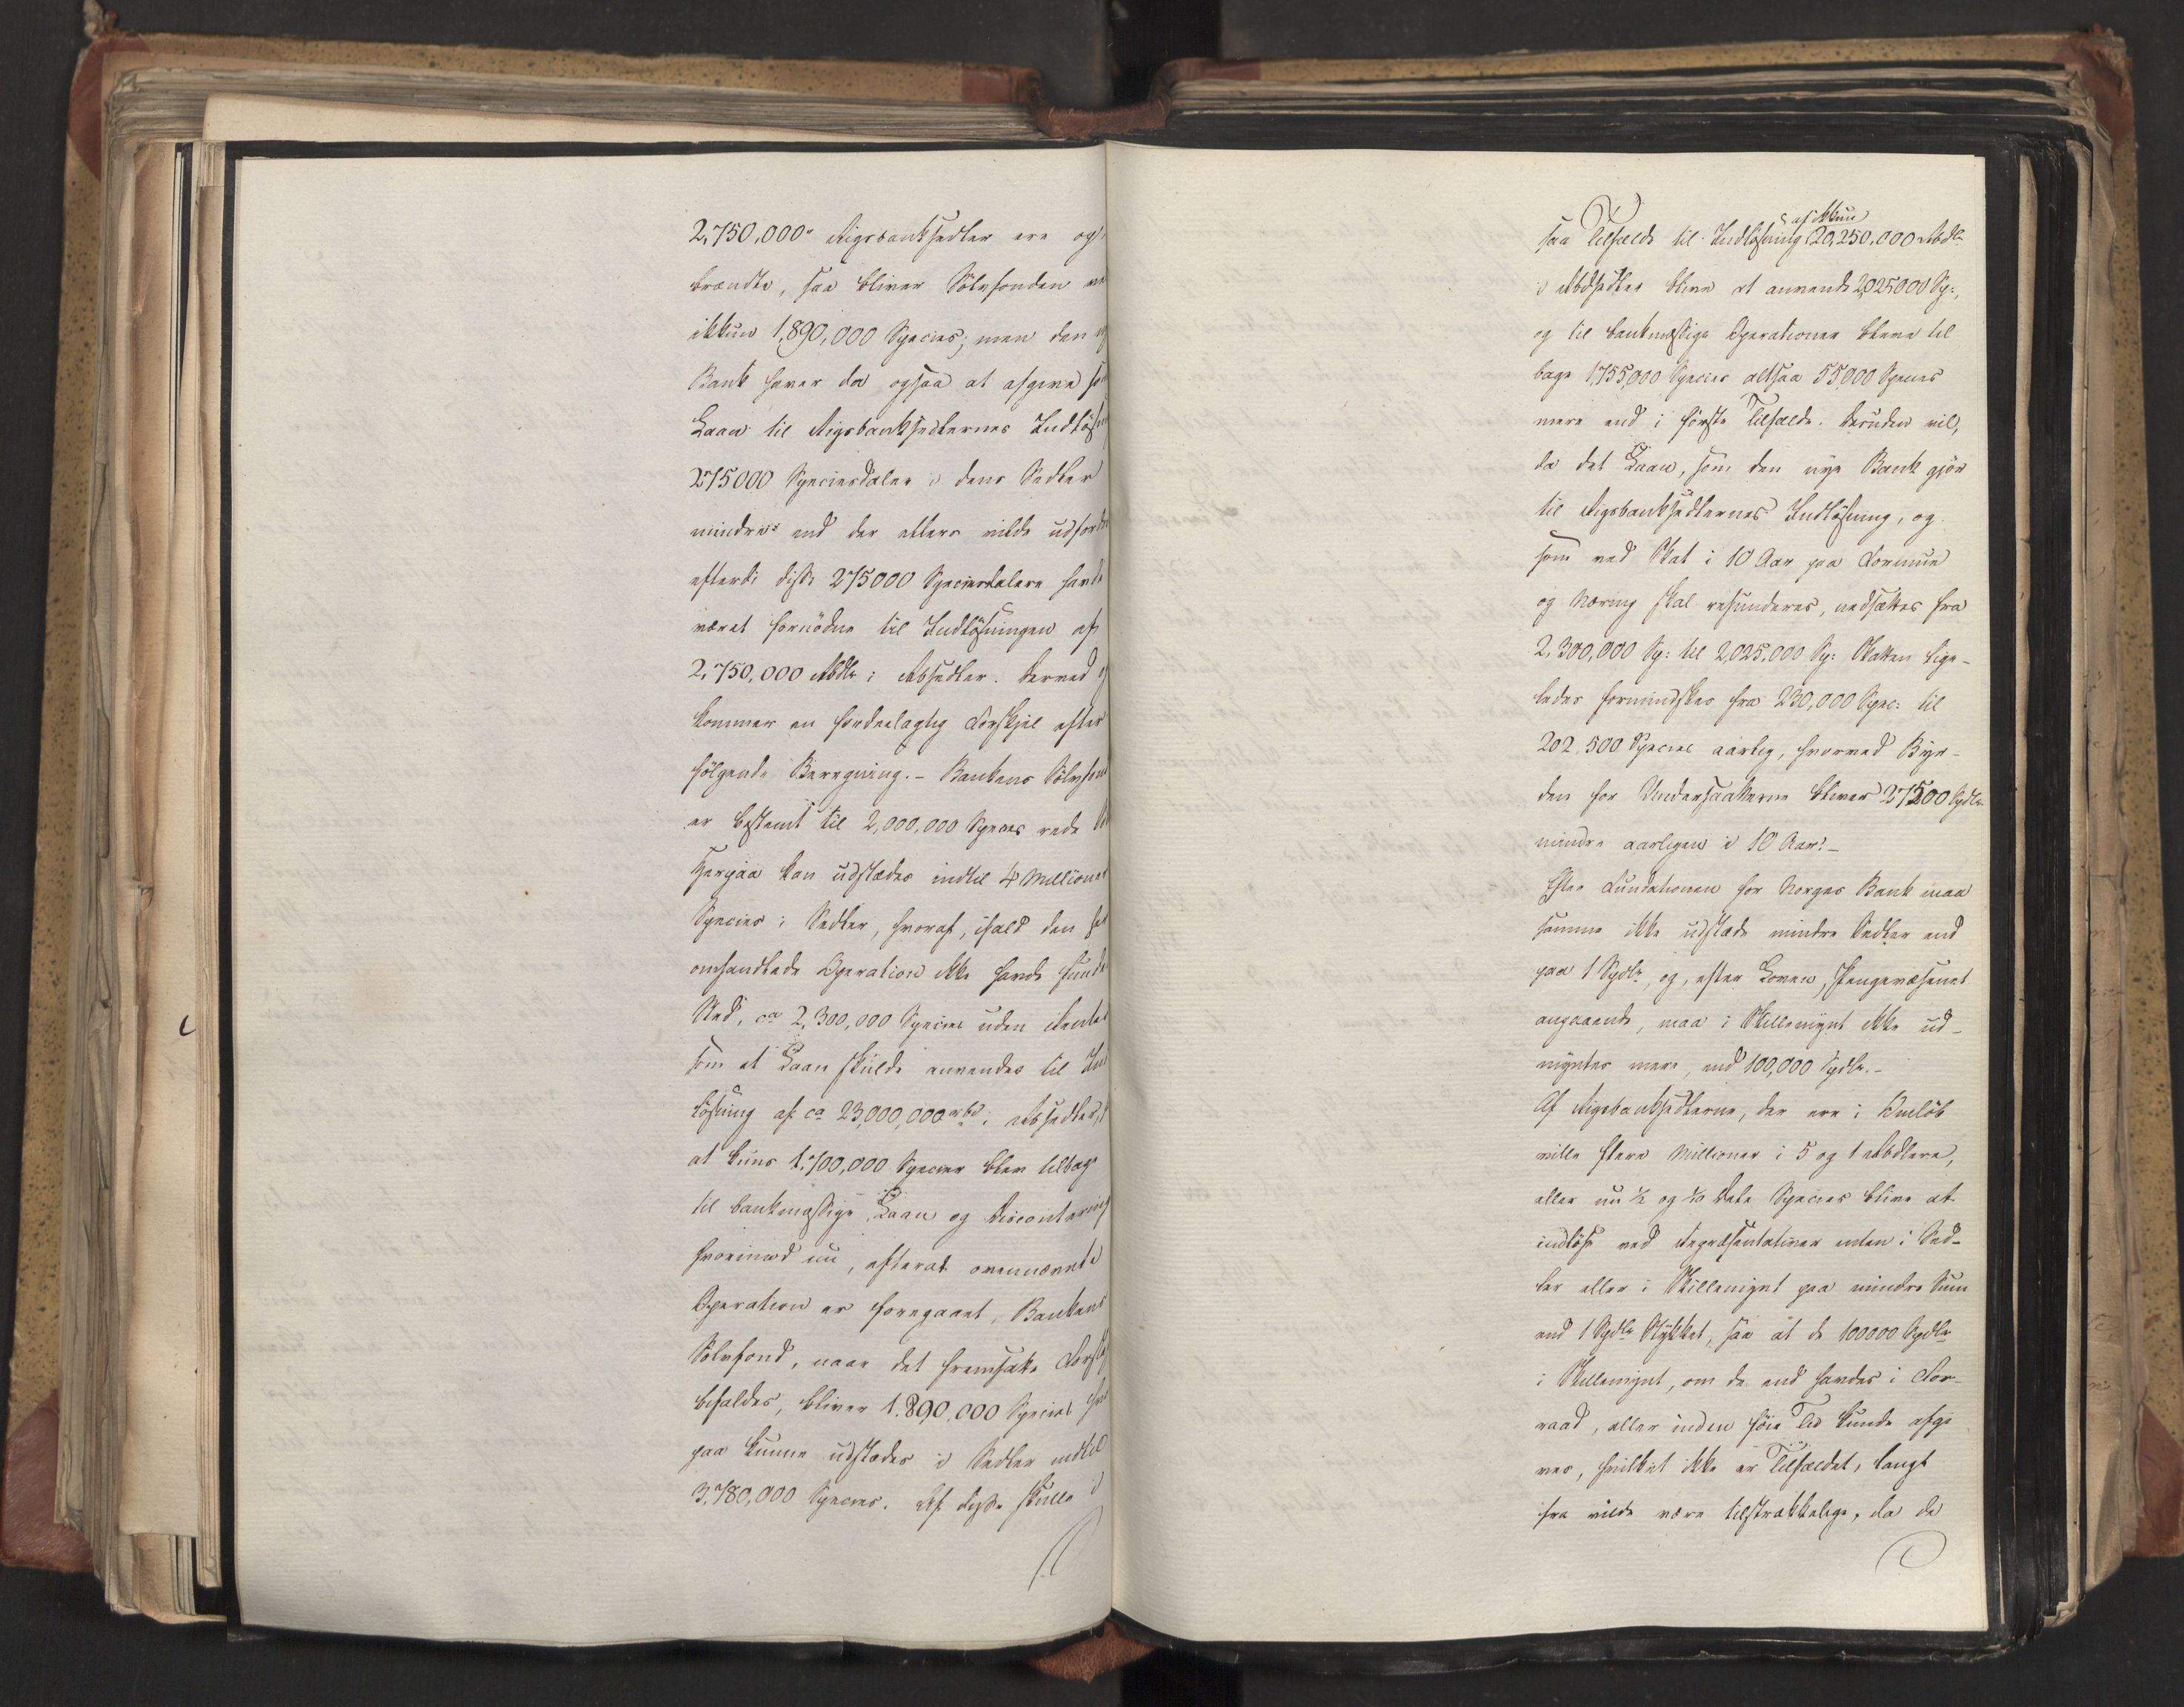 2,750,000 Rigsbanksedler ere og
brændte, saa bliver Sölvfonden
ikkun 1,890,000 Species; men den
Bank haver da ogsaa at afgive
Laan til Rigsbanksedlernes Indlös
275000 Speciesdaler i dens Sedler
mindre end der ellers vilde udford
efterdi disse 275000 Speciesdalere havde
været fornödne til Indlösningen af
2,750,000 Rbdlr i Rbsedler. Derved
kommer en fordeelagtig Forskjel efter
fölgende Beregning. – Bankens Sölvfond
er bestemt til 2,000,000 Species rede
Herpaa kan udstædes indtil 4 Millioner
Species i Sedler, hvoraf, ifald den
omhandlede Operation ikke havde fundet
Sted, ca 2,300,000 Species uden Renter
som et Laan skulde anvendes til Ind
lösning af ca 23,000,000 rbd i Rbsedler,
at kuns 1,700,000 Species blev tilbage
til bankmæssige Laan og Discontering
hvorimod nu, efterat ovennævnte
Operation er foregaaet, Bankens
Sölvfond, naar det fremsatte Forslag
befaldes, bliver 1.890,000 Species
paa kunne udstædes i Sedler indtil
3,780,000 Species. Af disse skulle i
saa Tilfælde til Indlösning af ikkun 20,250,000 Rbdlr
i Rbdsedler blive at anvende 2,025000 Sp:,
og til bankmæssige Operationer bleve til
bage 1,755,000 Species altsaa 55000 Species
mere end i förste Tilfælde. Desuden vil,
da det Laan, som den nye Bank gjör
til Rigsbanksedlernes Indlösning, og
som ved Skat i 10 Aar paa Formue
og Næring skal refunderes, nedsættes fra
2,300,000 Sp: til 2,025,000 Sp: Skatten lige-
ledes formindskes fra 230,000 Spec: til
202,500 Species aarlig, hvorved Byr-
den for Undersaatterne bliver 27500 Spdlr
mindre aarligen i 10 Aar. –
Efter Fundationen for Norges Bank maa
samme ikke udstæde mindre Sedler end
paa 1 Spdlr, og, efter Loven, Pengevæsenet
angaaende, maa i Skillemynt ikke ud-
myntes mere, end 100,000 Spdlr. –
Af Rigsbanksedlerne, der ere i Omlöb
ville flere Millioner i 5 og 1 Rbdlere,
eller nu ½ og 1/10 Dele Species blive at
indlöse ved Repræsentativer enten i Sed-
ler eller i Skillemynt paa mindre Sum
end 1 Spdlr Stykket, saa at de 100000 Spdlr
i Skillemynt, om de end havdes i For-
raad, eller inden föie Tid kunde afgi
ves, hvilket ikke er Tilfældet, langt
fra vilde være tilstrækkelige, da de